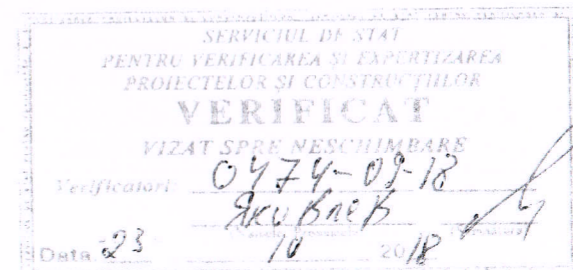 SERVICIUL DE STAT
PENTRU VERIFICAREA ȘI EXPERTIZAREA
PROIECTELOR ȘI CONSTRUCȚIILOR
VERIFICAT
VIZAT SPRE NESCHIMBARE
Verificatori: 0474-09-18
Яковлев
Data 23 10 2018